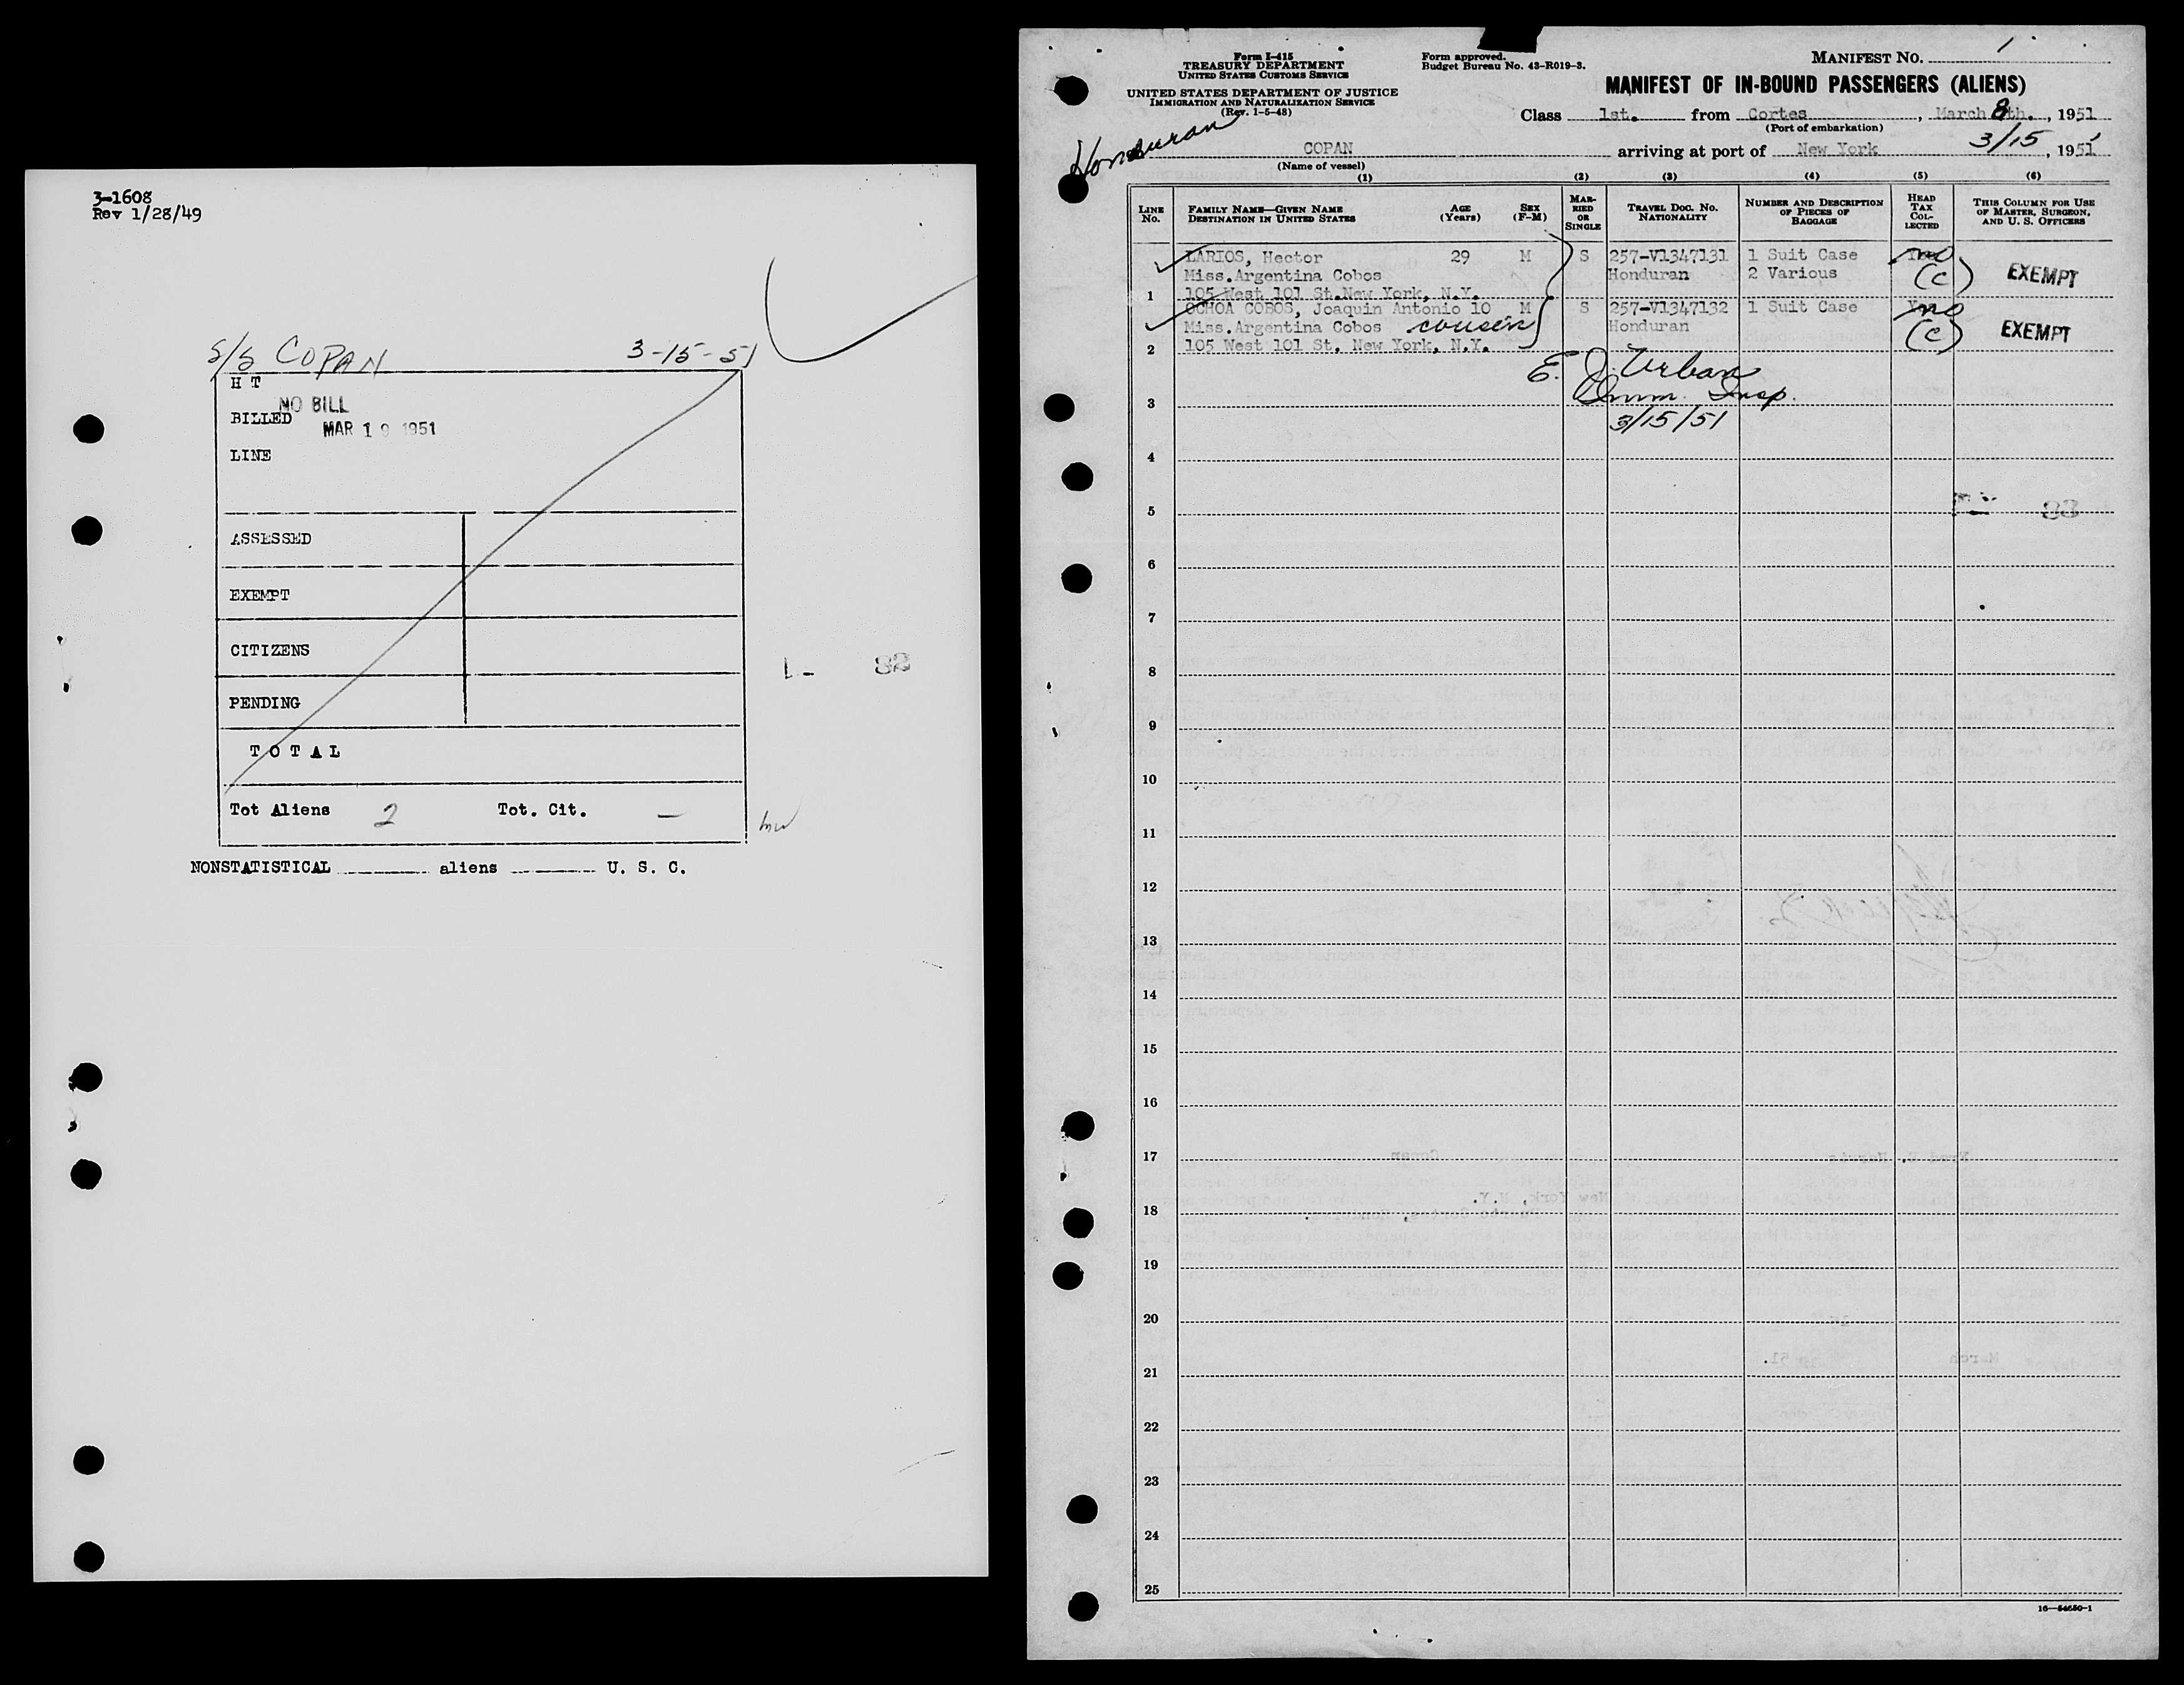 3-1608
Rev 1/28/49
S/S COPAN 3-15-51
H T
NO BILL
BILLED
MAR 19 1951
LINE
ASSESSED
EXEMPT
CITIZENS
PENDING
T O T A L
Tot Aliens 2 Tot. Cit. —
NONSTATISTICAL aliens U. S. C.
Form I-415
TREASURY DEPARTMENT
UNITED STATES CUSTOMS SERVICE
UNITED STATES DEPARTMENT OF JUSTICE
IMMIGRATION AND NATURALIZATION SERVICE
(Rev. 1-5-48)
Form approved.
Budget Bureau No. 43-R019-3.
MANIFEST NO. 1
MANIFEST OF IN-BOUND PASSENGERS (ALIENS)
Class 1st. from Cortes, March 8th., 1951
(Port of embarkation)
Honduran
COPAN arriving at port of New York 3/15, 1951
(Name of vessel)
(1) (2) (3) (4) (5) (6)
LINE NO.
FAMILY NAME—GIVEN NAME
DESTINATION IN UNITED STATES
AGE (Years)
SEX (F-M)
MARRIED OR SINGLE
TRAVEL DOC. NO.
NATIONALITY
NUMBER AND DESCRIPTION OF PIECES OF BAGGAGE
HEAD TAX COLLECTED
THIS COLUMN FOR USE OF MASTER, SURGEON, AND U. S. OFFICERS
LARIOS, Hector 29 M S 257-V1347131 1 Suit Case no
Miss.Argentina Cobos Honduran 2 Various (C) EXEMPT
1 105 West 101 St.New York, N.Y.
OCHOA COBOS, Joaquin Antonio 10 M S 257-V1347132 1 Suit Case no
Miss.Argentina Cobos cousin Honduran (C) EXEMPT
2 105 West 101 St. New York, N.Y.
E. J. Urban
Imm. Insp.
3
3/15/51
4
5
6
7
8
9
10
11
12
13
14
15
16
17
18
19
20
21
22
23
24
25
16—54650-1